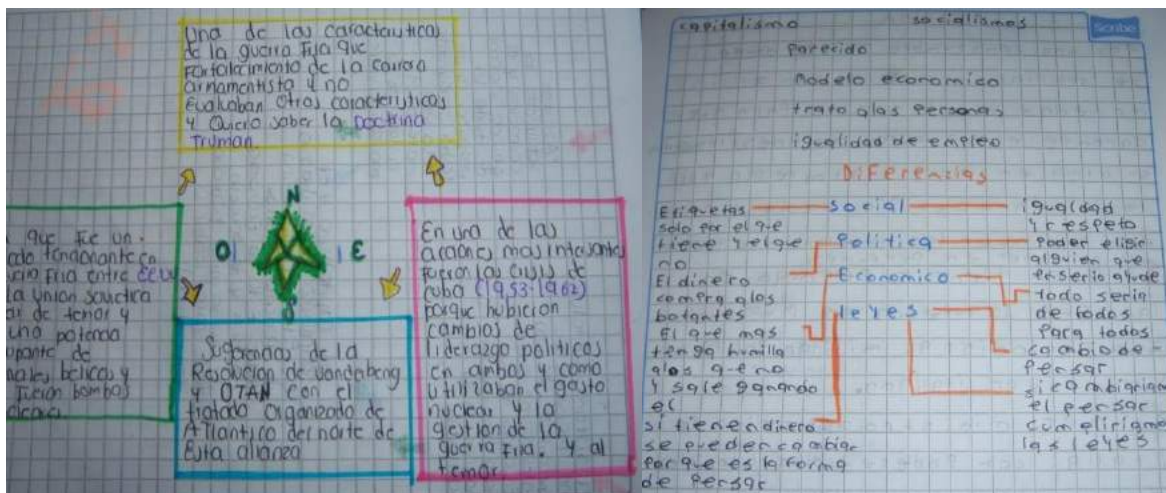 Una de las caracteristicas
de la guerra Fria que
Fortalecimiento de la carrera
armamentista y no
Evaluaban otras caracteristicas
y Quiero saber la Doctrina
Truman.
N
O
E
S
que fue un
Fria entre EEUU
la union sovietica
de temor y
una potencia
de
belicas y
bombas
Sugerencias de la
Resolucion de vandeberg
y OTAN con el
tratado Organizado de
Atlantico del norte de
Esta alianza
En una de las
acciones mas interesante
fueron las crisis de
cuba (1953-1962)
porque hubicion
cambios de
liderazgo politicos
en ambos y como
utilizaban el gasto
nuclear y la
gestion de la
guerra Fria. y al
temor
capitalismo
socialismos
Scribe
Parecido
Modelo economico
trato alas Personas
igualidad de empleo
DiFerencias
Etiquetas
solo por el que
tiene y el que
no
El dinero
compra alos
botantes
El que mas
tenga humilla
alos que no
y sale ganando
el
si tienen dinero
se pueden cambiar
Porque es la forma
de Pensar
social
Politica
Economico
leyes
igualdad
y respeto
Poder elisir
alguien que
enserio ayude
todo seria
de todos
Para todos
cambio de
Pensar
si cambiariga
el pensar
cumpliriamos
las leyes